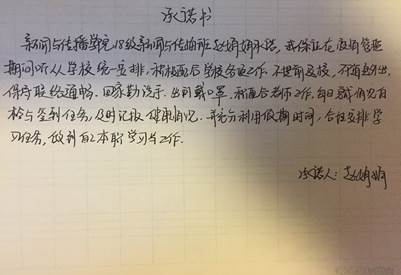 承诺书
新闻与传播学院18级新闻与传播班赵娟娟承诺，我保证在疫情管控
期间听从学校统一安排，积极配合学校各项工作，不提前返校，不随意外出，
保持联络通畅。回家勤洗手，出门戴口罩，积极配合老师工作，每日疫情自
检与签到任务，及时汇报健康情况。并充分利用假期时间，合理安排学
习任务，做到自己本职学习与工作。
承诺人：赵娟娟